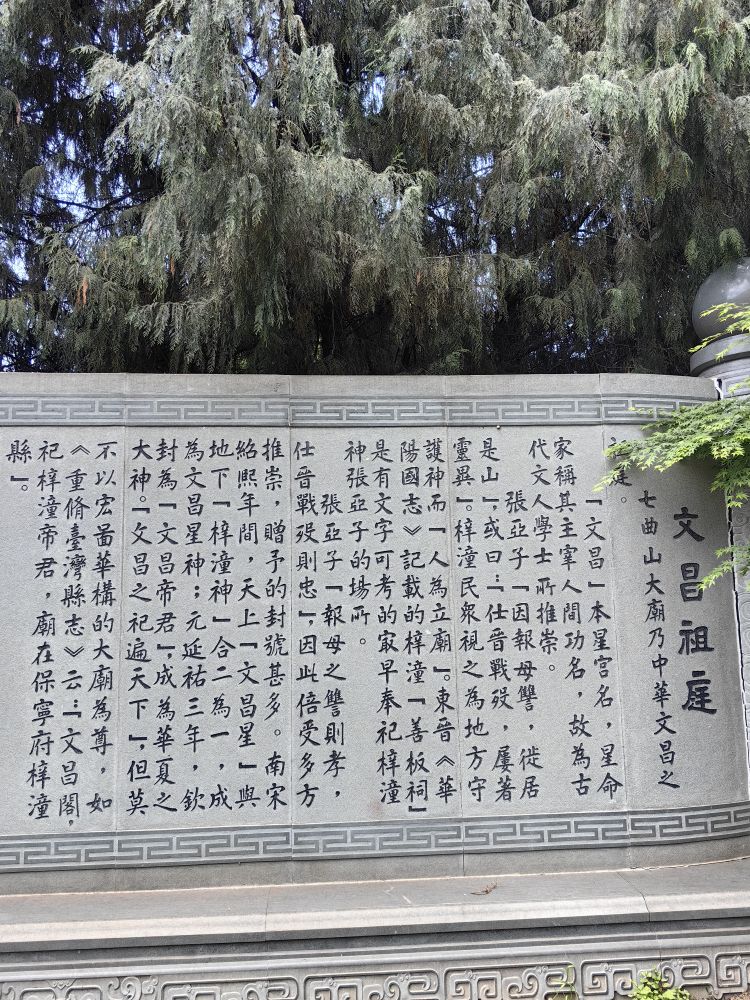 文昌祖庭
七曲山大廟乃中華文昌之
庭。
「文昌」本星宫名，星命
家稱其主宰人間功名，故為古
代文人學士所推崇。
張亞子「因報母讐，徙居
是山」，或曰：「仕晉戰殁，屢著
靈異」。梓潼民衆視之為地方守
護神而「人為立廟」。東晉《華
陽國志》記載的梓潼「善板祠」
是有文字可考的㝡早奉祀梓潼
神張亞子的場所。
張亞子「報母之讐則孝，
仕晉戰殁則忠」，因此倍受多方
推崇，贈予的封號甚多。南宋
紹熙年間，天上「文昌星」與
地下「梓潼神」合二為一，成
為文昌星神；元延祐三年，欽
封為「文昌帝君」，成為華夏之
大神。「文昌之祀遍天下」，但莫
不以宏啚華構的大廟為尊，如
《重脩臺灣縣志》云：「文昌閣，
祀梓潼帝君，廟在保寧府梓潼
縣」。